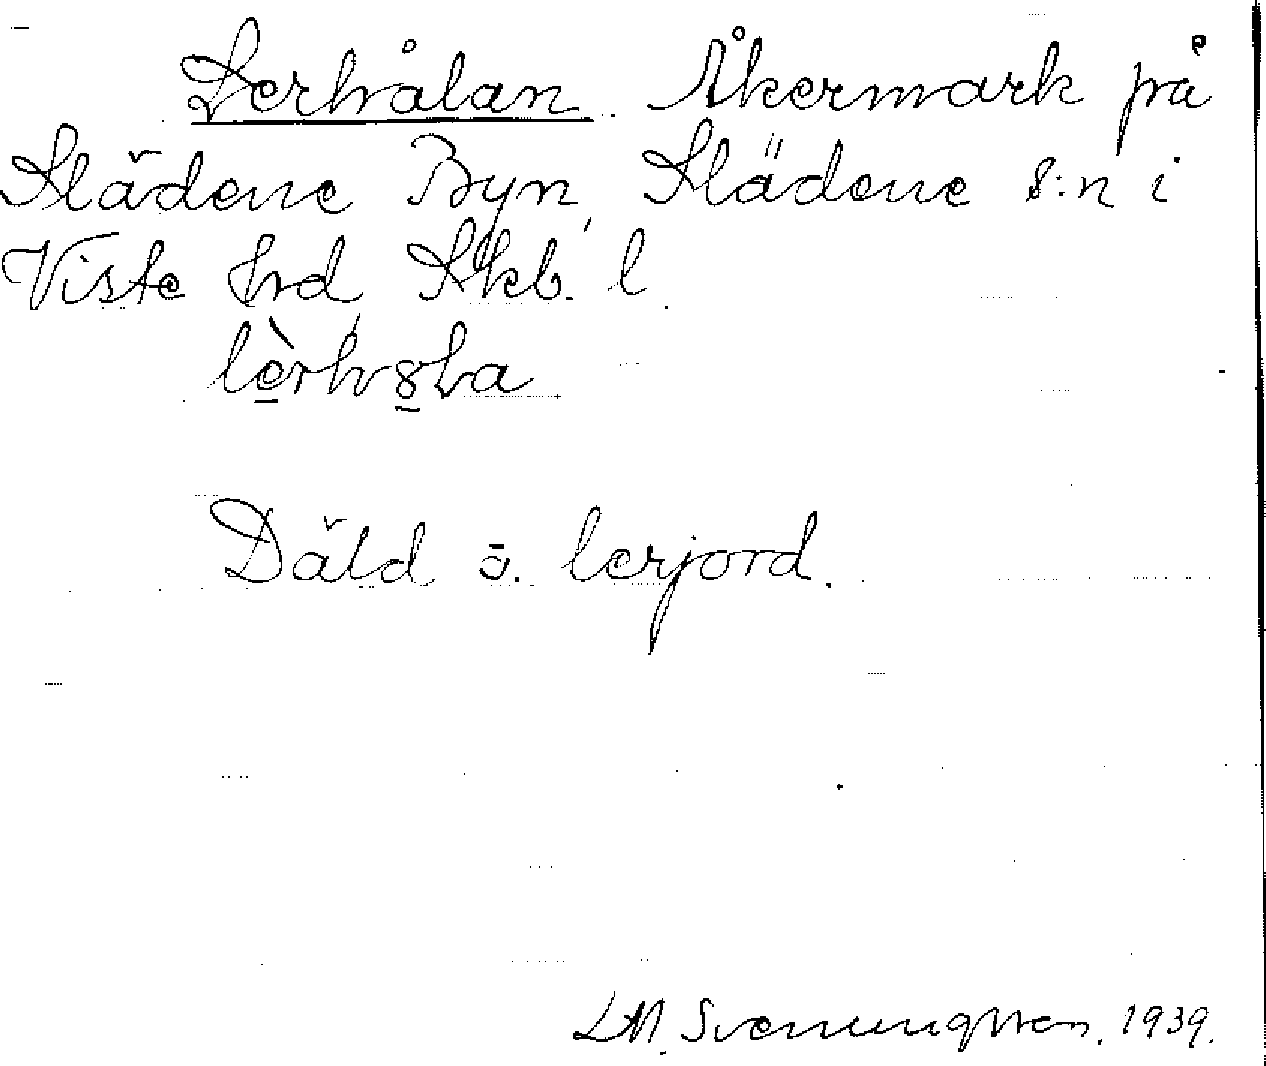 Lerhålan Åkermark på
Slädene Byn, Slädene s:n i
Viste hrd, Skb. l.
lèrhɷLa
Däld ö. lerjord.
LM. Svenungsson. 1939.